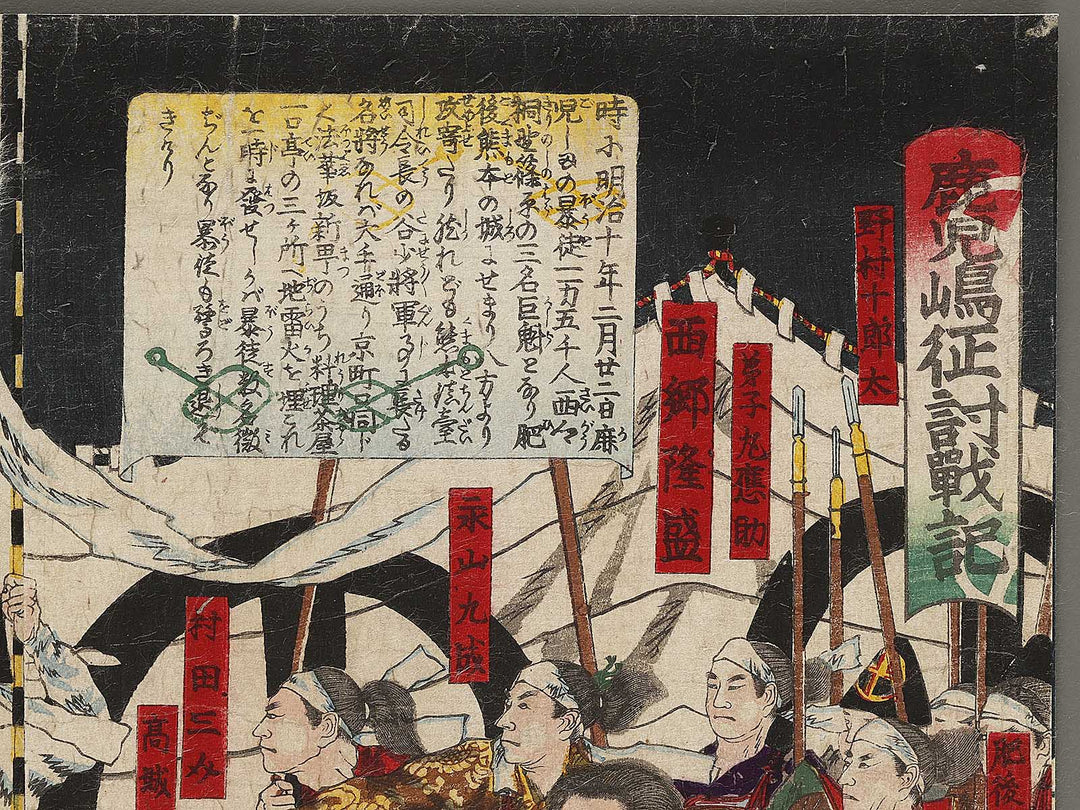 鹿児嶋征討戰記
野村十郎太
弟子丸應助
西郷隆盛
時に明治十年二月廿二日麻
児しまの暴徒一万五千人西郷
桐野篠原の三名巨魁となり肥
後熊本の城によせまり八方より
攻寄たり然れども熊本鎮臺
司令長の谷少將軍事に長たる
名將なれバ大手通り京町口同下
大法華坂新町のうち料理茶屋
一日亭の三ヶ所へ地雷火を埋これ
を一時に發せしかバ暴徒数名微
ぢんとなり暴徒も驚ろき退ぞ
きけり
永山九成
村田三介
高城
肥後